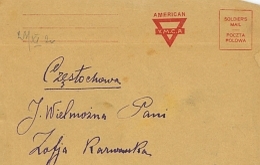 AMERICAN
Y.M.C.A.
SOLDIERS
MAIL
POCZTA
POLOWA
Częstochowa
J. Wielmożna Pani
Zofja